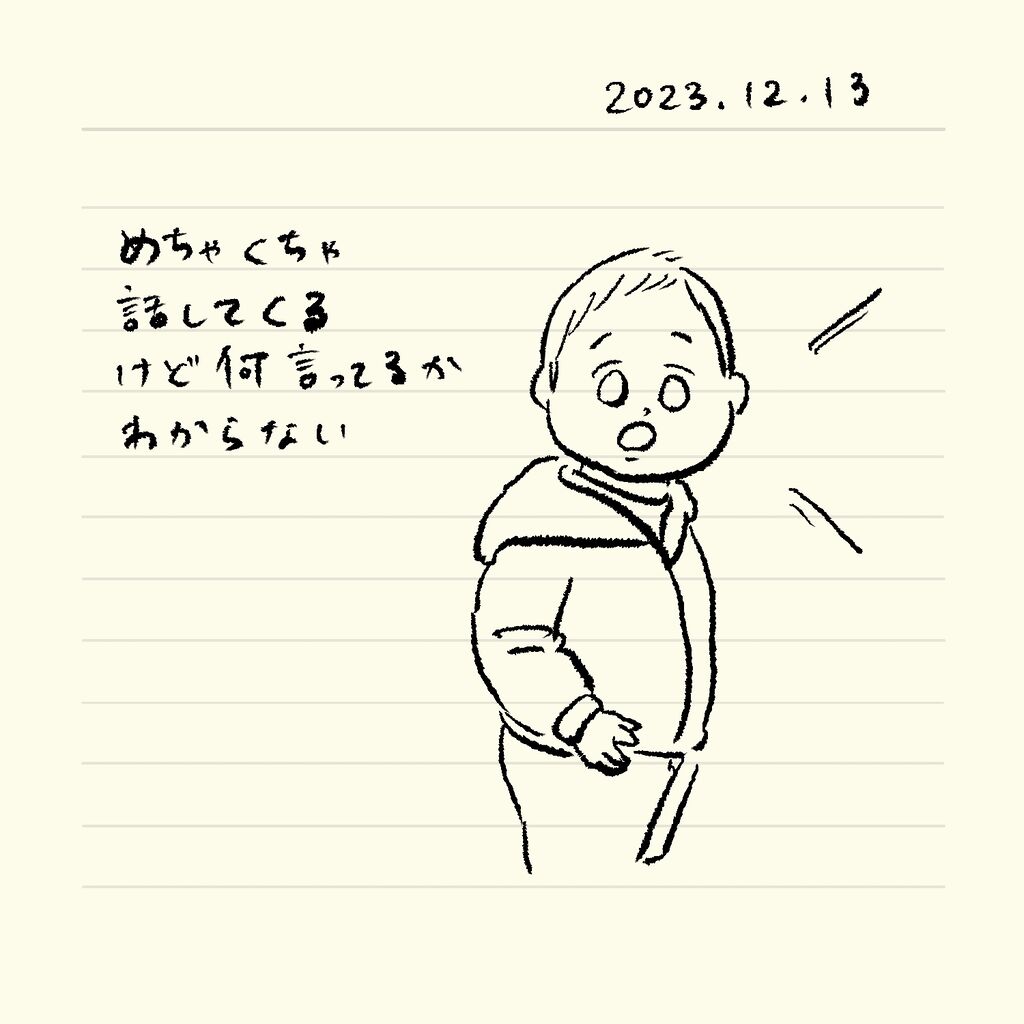 2023.12.13
めちゃくちゃ
話してくる
けど何言ってるか
わからない